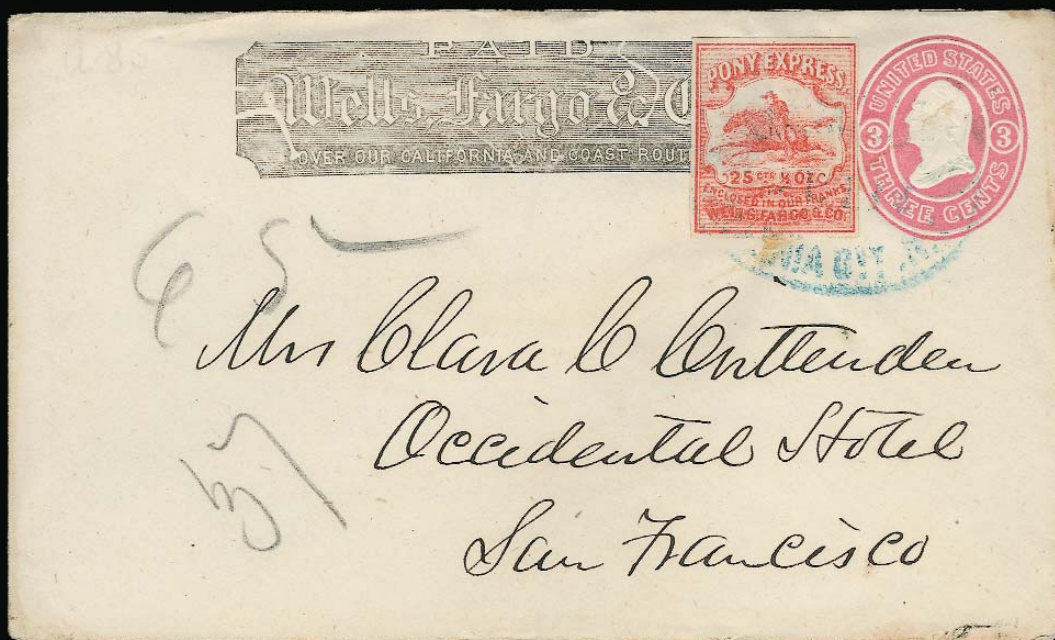 PAID
Wells, Fargo & C
OVER OUR CALIFORNIA AND COAST ROUT
PONY EXPRESS
25 CTS ½ OZ
ENCLOSED IN OUR FRANKS
WELLS, FARGO & CO.
UNITED STATES
3 3
THREE CENTS
Mrs Clara C Crittenden
Occidental Hotel
San Francisco